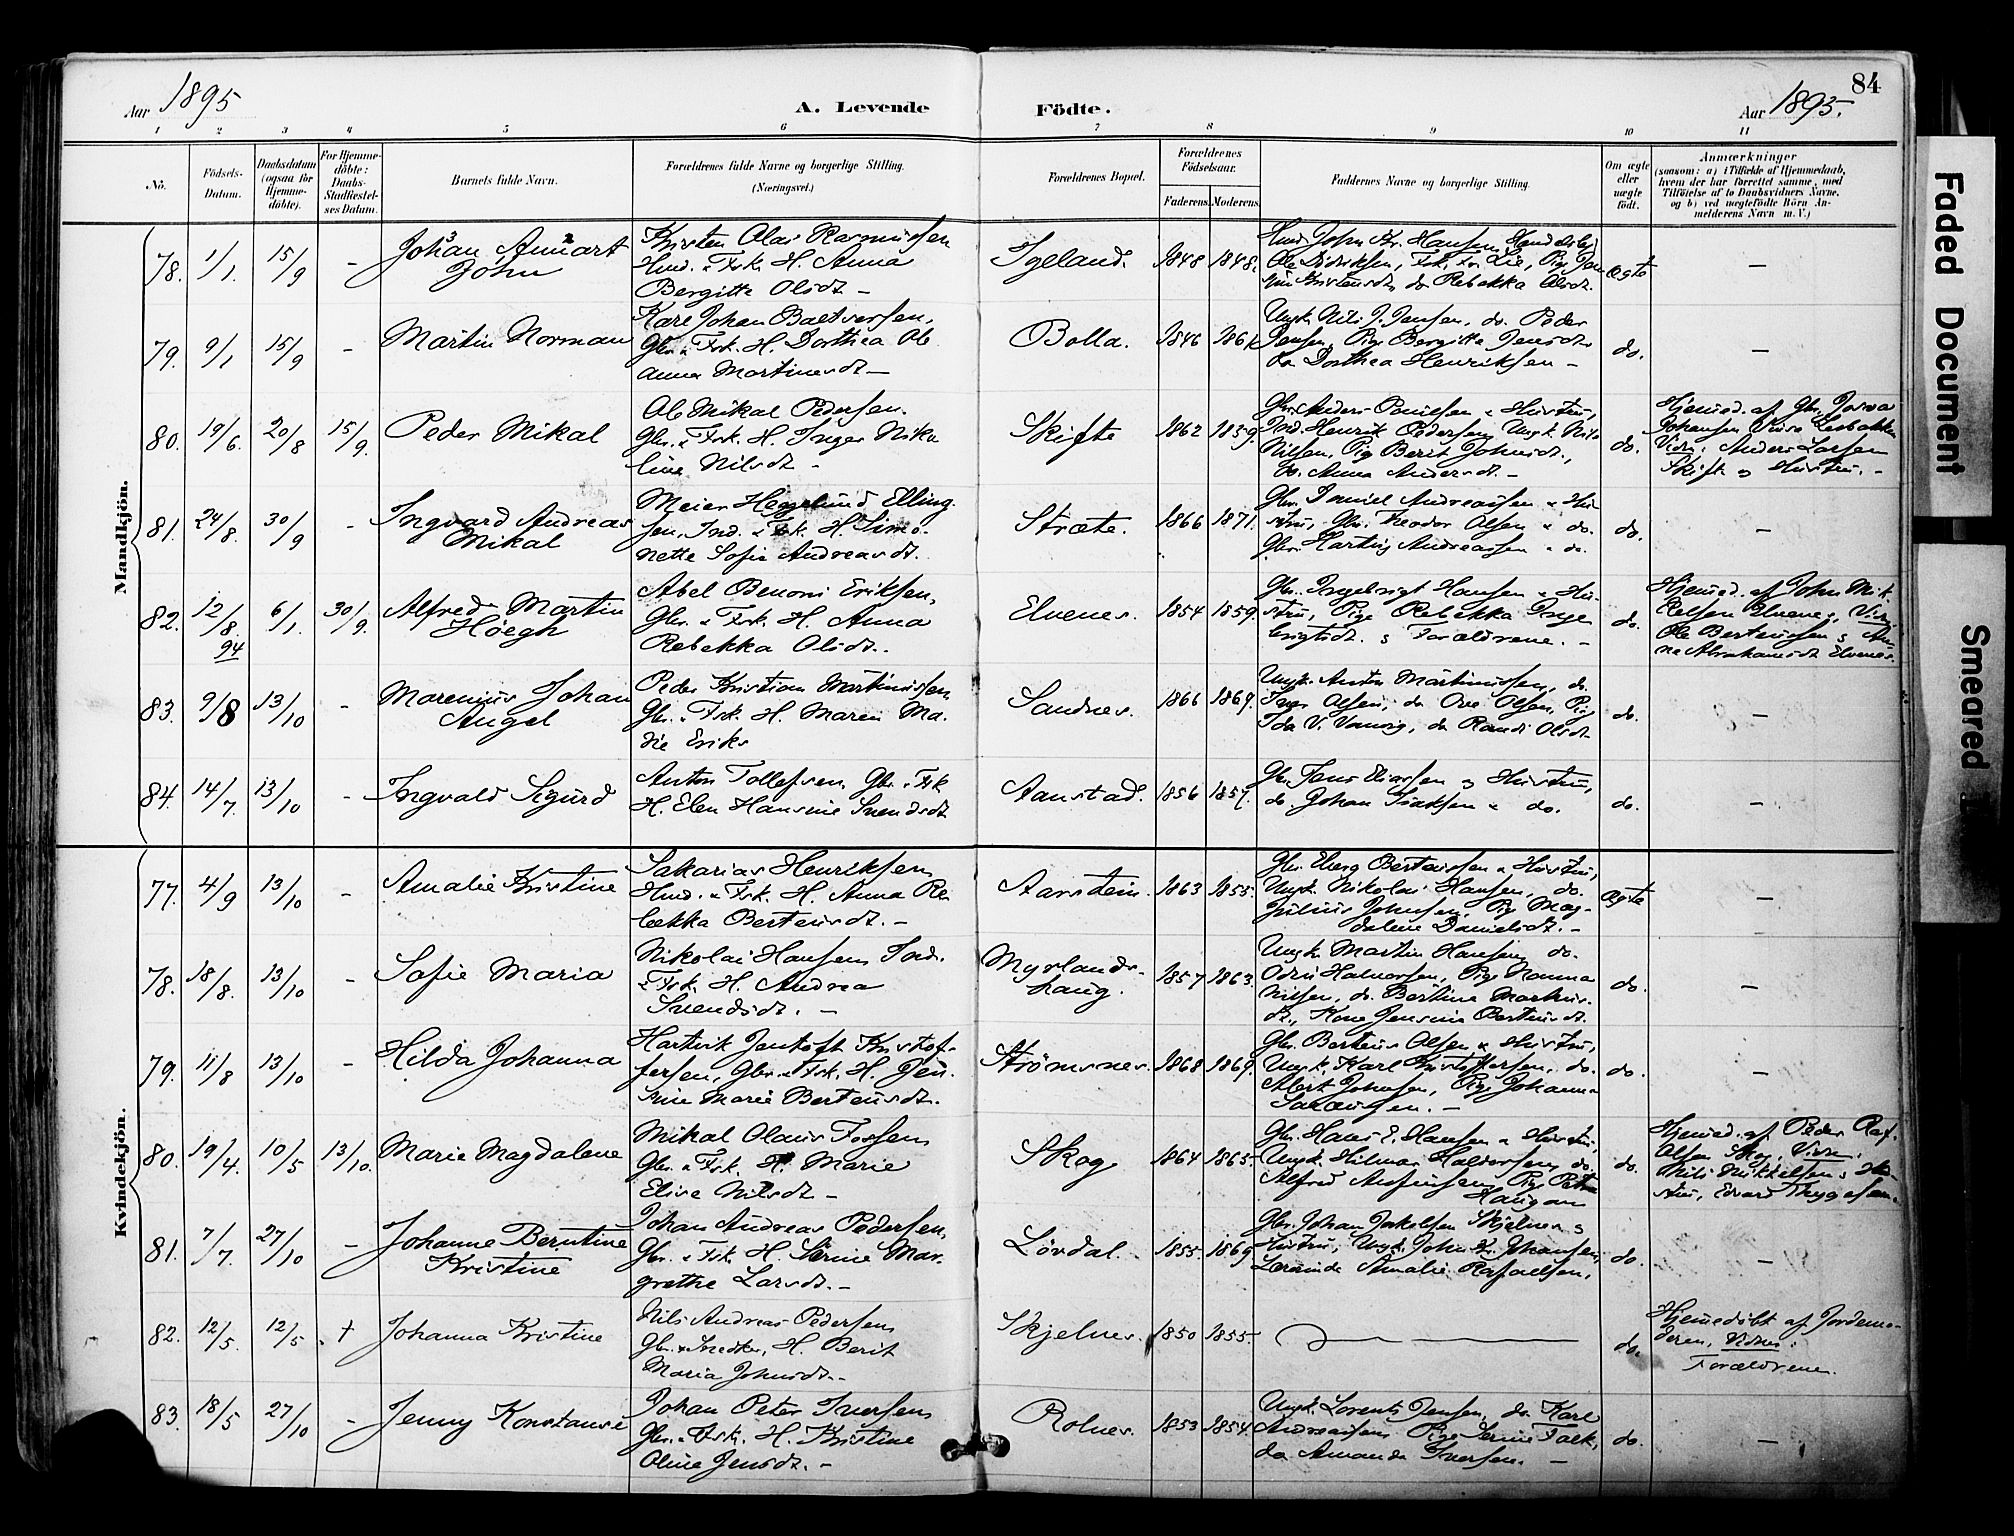 84
Aar 1895
A. Levende
Födte.
Aar 1895.
1 2 3 4 5 6 7 8 9 10 11
No.
Födsels-
Datum.
Daabsdatum
(ogsaa for
Hjemme-
döbte).
For Hjemme-
döbte:
Daabs-
Stadfæstel-
ses Datum.
Barnets fulde Navn.
Forældrenes fulde Navne og borgerlige Stilling.
(Næringsvei.)
Forældrenes Bopæl.
Forældrenes
Födselsaar.
Faderens. Moderens.
Faddernes Navne og borgerlige Stilling.
Om ægte
eller
uægte
födt.
Anmærkninger
(saasom: a) i Tilfælde af Hjemmedaab,
hvem der har forrettet samme, med
Tilföielse af to Daabsvidners Navne,
og b) ved uægtefödte Börn An-
melderens Navn m. V.)
Mandkjön.
78. 1/1. 15/9 -
Johan Annart
John
Kristen Olai Rasmussen
Hmd. & Fsk. H. Anna
Bergitte Olsdt. -
Igeland. 1848 1848.
Ole Didriksen, Fsk. Fr. Lie, Pige Jen
Kristensdt, do Rebekka Olsdt.
ægte
-
79. 9/1 15/9 -
Martin Norman
Karl Johan Baltsersen,
Gbr. & Fsk. H. Dorthea Ol
anna Martinesdt -
Bolla. 1846 1861
Ungk. Nils J. Jensen, do. Peder
Jensen, Pige Bergitte Jensdt
do Dorthea Henriksen -
do.
-
80. 19/6. 20/8 15/9.
Peder Mikal
Ole Mikal Pedersen.
Gbr. & Fsk. H. Inger Niko
line Nilsdt -
Skifte 1862 1859.
Gbr. Anders Paulsen & Hustru,
Ind. Henrik Pedersen, Ungk. Nils
Nilsen, Pige Berit Johnsdt.,
do. Anna Andersdt. -
do.
Hjemmed. af Gbr. Josva
Johansen
Vidn: Anders Larsen
Skift og Hustru. -
81. 24/8. 30/9 -
Ingvard Andreas
Mikal
Meier Hegelund Elling-
sen, Ind. & Fsk. H. Simo-
nette Sofie Andreasdt.
Stræte. 1866 1871.
Gbr. Daniel Andreassen & Hu-
stru, Gbr. Theodor Olsen & do.
Gbr. Hartvig Andreassen & do.
do.
-
82. 12/8. 94 6/1. 30/9.
Alfred Martin
Höegh
Abel Benoni Eriksen,
Gbr. & Fsk. H. Anna
Rebekka Olsdt..
Elvenes. 1854 1859.
Gbr. Ingebrigt Hansen & Hu-
stru, Pige Rebekka Inge
brigtsdt. & Forældrene. -
do.
Hjemmed. af John Mik
kelsen Elvenes, Vidn:
Ole Berteussen & An
ne Abrahamsdt Elvenes.
83. 9/8 13/10 -
Marenius Johan
Angel
Peder Kristian Martinussen
Gbr. & Fsk. H. Maren Ma-
die Eriks
Sandnes. 1866 1869.
Ungk. Anton Martinussen, do.
Iver Olsen, do Ove Olsen, Pig
Ida V. Vanvig, do Randi Olsdt
do.
-
84. 14/7. 13/10 -
Ingvald Sigurd
Anton Tollefsen, Gbr. & Fsk
H. Elen Hansine Svendsdt
Aanstad. 1856 1857.
Gbr. Jens Eliassen og Hustru,
do. Johan Isaksen & do.
do.
-
Kvindekjön.
77. 4/9 13/10 -
Amalie Kristine
Sakarias Henriksen
Hmd. & Fsk. H. Anna Re
bekka Berteusdt. -
Aarstein. 1863 1855.
Gbr. Eberg Berteussen & Hustru,
Ungk. Nikolai Hansen, do.
Julius Johnsen, Pig Mag-
dalene Danielsdt. -
ægte
-
78. 18/8. 13/10 -
Sofie Maria
Nikolai Hansen Ind.
& Fsk. H. Andrea
Svendsdt. -
Myrlands-
haug. 1857 1863.
Ungk. Martin Hansen, do.
Odin Halvorsen, Pige Nanna
Nilsen, do. Bertine Martinus-
dt., Kone Jensine Berteusdt.
do.
-
79. 11/8 13/10 -
Hilda Johanna
Hartvik Jentoft Kristof-
fersen, Gbr. & Fsk. H. Jen-
sine Marie Berteusdt.
Strömsnes. 1868 1869.
Gbr. Berteus Olsen & Hustru,
Ungk. Karl Kristoffersen, do.
Albert Johnsen, Pige Johanna
do.
-
80. 19/4. 10/5 13/10.
Marie Magdalene
Mikal Olaus Tossen
Gbr. & Fsk. H. Marie
Elise Nilsdt -
Skog 1864 1865.
Gbr. Hans E. Hansen & Hustru,
Ungk. Hilmar Haldorsen, do.
Alfred
Haugan
do.
Hjemmed. af Peder Raf.
Olsen Skog, Vidn:
Nils Mikkelsen & Hu-
stru, Edvard Thygesen.
81. 7/7. 27/10 -
Johanne Berntine
Kristine
Johan Andreas Pedersen,
Gbr. & Fsk. H. Serine Mar-
grethe Larsdt. -
Lövdal. 1855. 1869
Gbr. Johan Jakobsen Skjelnes &
Hustru, Ungk. John Kr. Johansen,
Amalie Rafaelsen,
do.
-
82. 12/5. 12/5 †
Johanna Kristine
Nils Andreas Pedersen
Gbr. & Snedker, H. Berit
Maria Johnsdt.-
Skjelnes. 1850 1855.
do.
Hjemmedöbt af Jordemo-
deren, Vidner:
Forældrene.
83 18/5 27/10 -
Jenny Konstanse
Johan Peter Iversen
Gbr. & Fsk. H. Kristine
Oline Jensdt. -
Rolnes. 1853 1854.
Ungk. Lorents Jensen, do. Karl
Andreassen Pige Serine Falk,
do Amanda Iversen. -
do.
-
Faded Document
Smeared